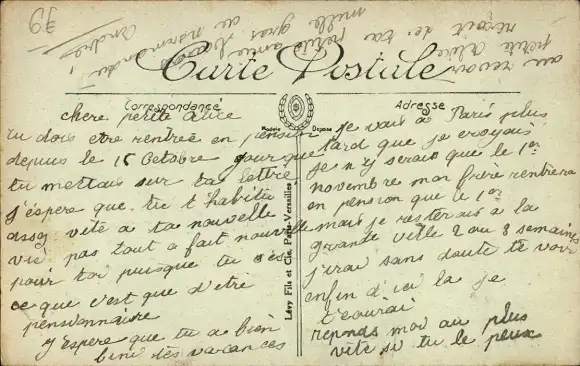 79
au revoir
petite alice reçoit de ta
petite amie
mille gros
de normandie
andrée
Carte Postale
Correspondance
Adresse
Modèle Déposé
Lévy Fils et Cie, Paris-Versailles
chere petite Alice
tu dois etre rentrée en pension
depuis le 15 Octobre jour que
tu mettais sur ta lettre
j'éspère que tu t habitu
assez vite a ta nouvelle
vie pas tout a fait nouvelle
pour toi puisque tu sais
ce que c'est que d'etre
pensionnaire
j'éspere que tu a bien
fini tes vacances
je vais à Paris plus
tard que je croyais
je n'y serais que le 1er
novembre mon frère rentrera
en pension que le 1er
mais je resterais a la
grande ville 2 ou 3 semaines
j'irai sans doute te voir
enfin d'ici la je
t'ecrirai
reponds moi au plus
vite si tu le peux